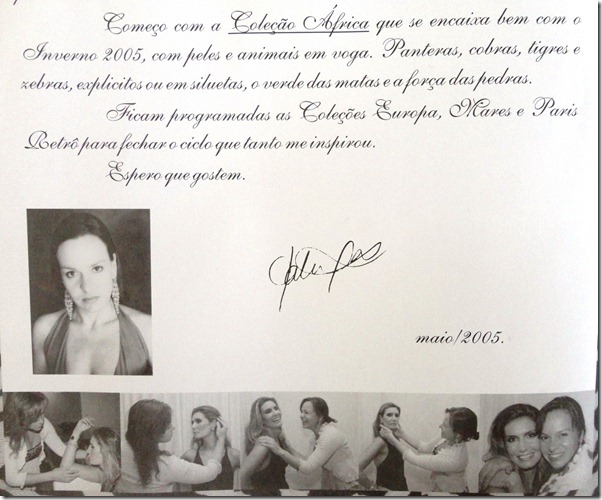 Começo com a Coleção África que se encaixa bem com o
Inverno 2005, com peles e animais em voga. Panteras, cobras, tigres e
zebras, explícitos ou em siluetas, o verde das matas e a força das pedras.
Ficam programadas as Coleções Europa, Mares e Paris
Retrô para fechar o ciclo que tanto me inspirou.
Espero que gostem.
maio/2005.